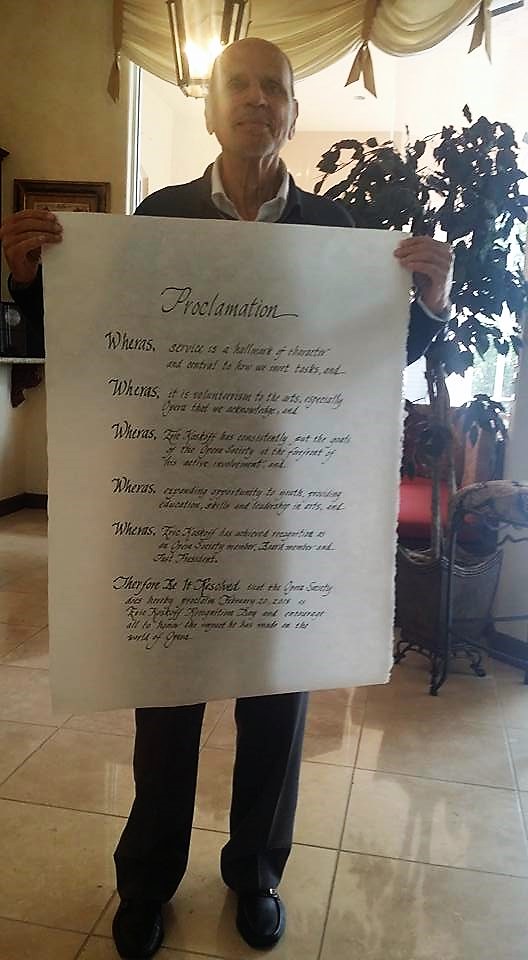 Proclamation
Wheras, service is a hallmark of character
and central to how we meet tasks, and
Wheras, it is volunteerism to the arts, especially
Opera that we acknowledge, and
Wheras, Eric Koskoff has consistently put the goals
of the Opera Society at the forefront of
his active involvement, and
Wheras, expanding opportunity to youth, providing
education, skills and leadership in arts, and
Wheras, Eric Koskoff has achieved recognition as
an Opera Society member, Board member and
Past President.
Therfore Be It Resolved that the Opera Society
does hereby proclaim February 20, 2016 is
Eric Koskoff Recognition Day and encourage
all to honor the impact he has made on the
world of Opera